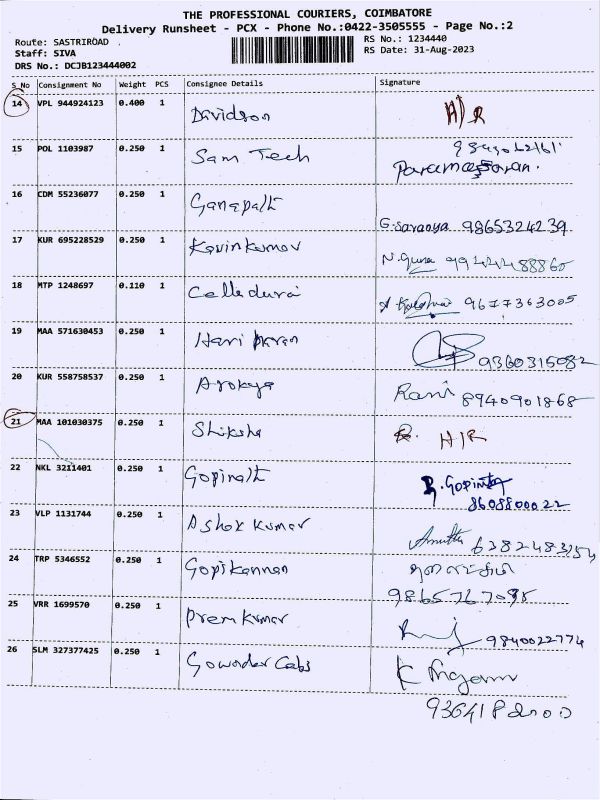 THE PROFESSIONAL COURIERS, COIMBATORE
Delivery Runsheet - PCX - Phone No.:0422-3505555 - Page No.:2
Route: SASTRIROAD RS No.: 1234440
Staff: SIVA RS Date: 31-Aug-2023
DRS No.: DCJB123444002
S_No Consignment No Weight PCS Consignee Details Signature
14 VPL 944924123 0.400 1 Davidson H/R
15 POL 1103987 0.250 1 Sam Tech
Parameswaran.
16 CDM 55236077 0.250 1 Ganapath
G. Saranya 9865324239
17 KUR 695228529 0.250 1 Kavinkumar
N. Guna
18 MTP 1248697 0.110 1 Celladurai
9677363005
19 MAA 571630453 0.250 1 Hari
9360315082
20 KUR 558758537 0.250 1 Arokya Rani 8940901868
21 MAA 101030375 0.250 1 Shiksha H/R
22 NKL 3211401 0.250 1 Gopinath R. Gopinath
8608800022
23 VLP 1131744 0.250 1 Ashok Kumar
Amutha 6382483154
24 TRP 5346552 0.250 1 Gopikannan
25 VRR 1699570 0.250 1 Prem Kumar
9840022774
26 SLM 327377425 0.250 1 Gowonder Cabs K